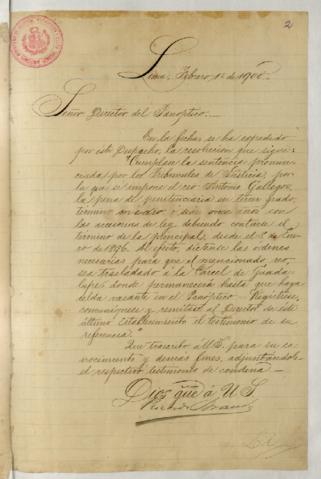 2
Lima, Febrero 1º de 1900
Señor Director del Panóptico.
En la fecha se ha expedido
por este Despacho, la resolución que sigue:
"Cúmplase la sentencia pronun-
ciada por los Tribunales de Justicia por
la que se impone al reo Antonio Gallegos,
la pena de penitenciaría en tercer grado,
término o sean once años con
las accesorias de ley, debiendo contarse el
término de la principal, desde el de Ene-
ro de 1896. Al efecto, díctense las órdenes
necesarias para que el mencionado, reo,
sea trasladado á la Cárcel de Guada-
lupe donde permanecerá hasta que haya
celda vacante en el Panóptico.- Regístrese,
comuníquese y remítase al Director de este
último Establecimiento el testimonio de su
referencia."
Que trascribo á US. para su co-
nocimiento y demás fines, adjuntándole
el respectivo testimonio de condena.-
Dios gue á US.